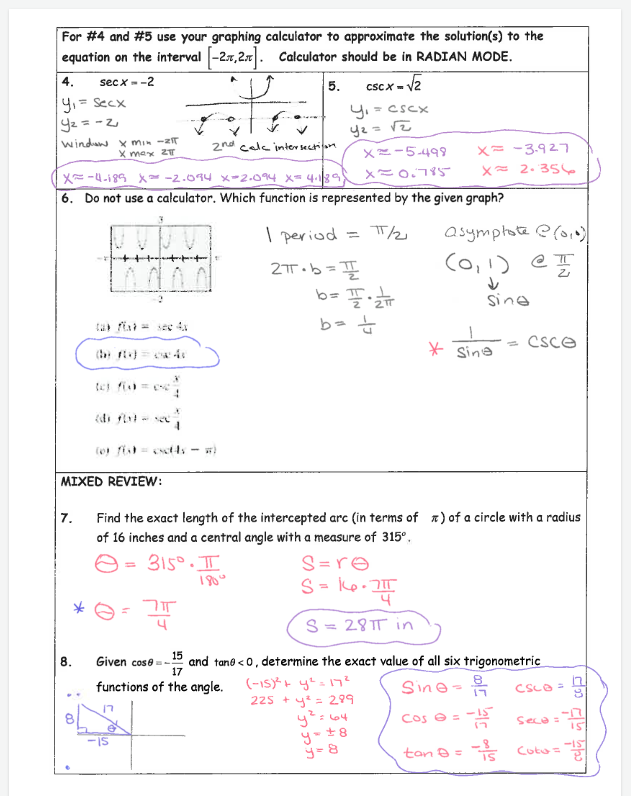 For #4 and #5 use your graphing calculator to approximate the solution(s) to the
equation on the interval [-2π,2π]. Calculator should be in RADIAN MODE.
4. sec x = -2
y₁ = secx
y₂ = -2
window x min -2π
x max 2π
2nd calc intersection
x≈-4.189 x≈-2.094 x≈2.094 x≈4.189
5. csc x = √2
y₁ = cscx
y₂ = √2
x≈-5.498 x≈ -3.927
x≈ 0.785 x≈ 2.356
6. Do not use a calculator. Which function is represented by the given graph?
3
-π
π
-2
(a) f(x) = sec 4x
(b) f(x) = csc 4x
(c) f(x) = csc x/4
(d) f(x) = sec x/4
(e) f(x) = csc(4x − π)
1 period = π/2
2π·b = π/2
b= π/2 · 1/2π
b= 1/4
asymptote @ (0,0)
(0,1) @ π/2
↓
sinθ
* 1/sinθ = cscθ
MIXED REVIEW:
7. Find the exact length of the intercepted arc (in terms of π) of a circle with a radius
of 16 inches and a central angle with a measure of 315°.
θ = 315° · π/180°
* θ = 7π/4
S = rθ
S = 16 · 7π/4
S = 28π in
8. Given cosθ = -15/17 and tanθ < 0, determine the exact value of all six trigonometric
functions of the angle.
(-15)² + y² = 17²
225 + y² = 289
y² = 64
y = ±8
y = 8
8
17
θ
-15
Sin θ = 8/17 CSCθ = 17/8
Cos θ = -15/17 Secθ = -17/15
tan θ = -8/15 Cotθ = -15/8